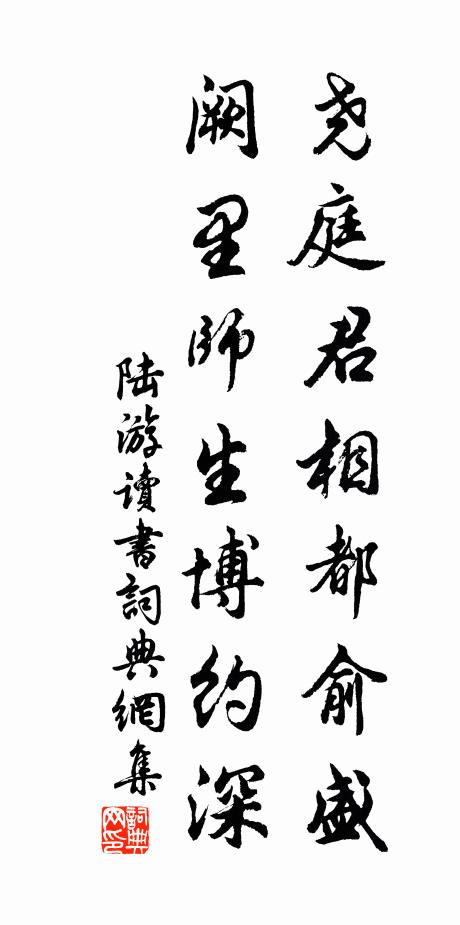 尧庭君相都俞盛
阙里师生博约深
陆游讀書詞典網集
詞典网印